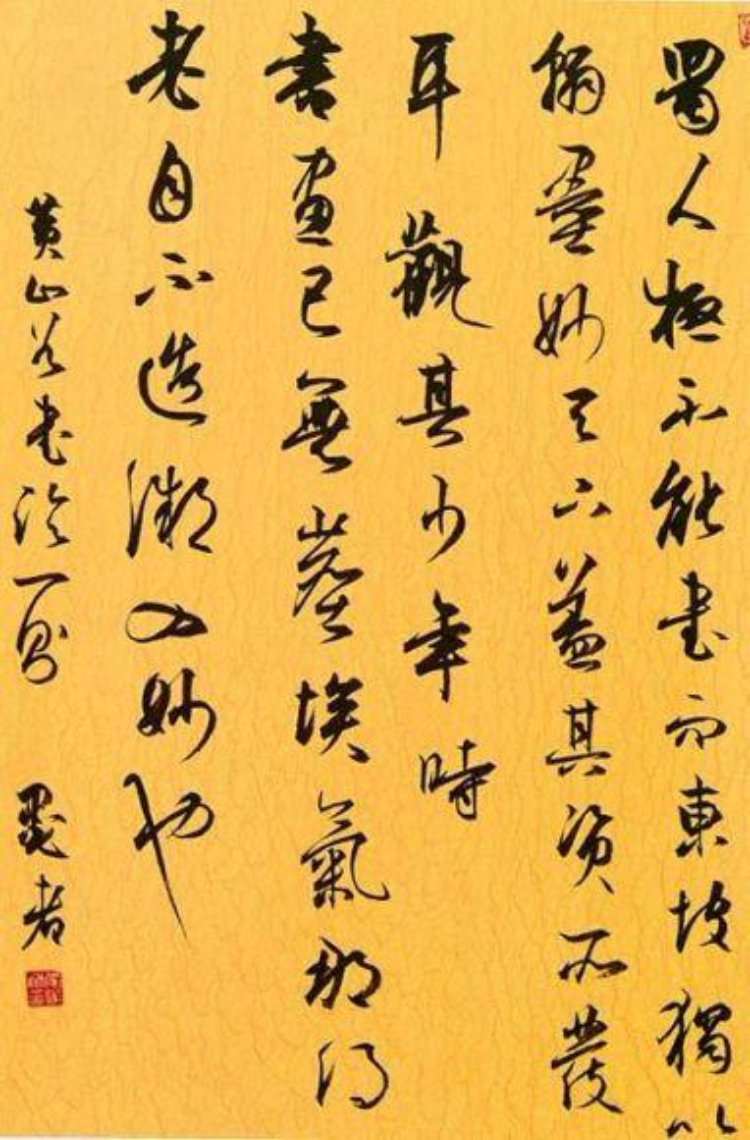 蜀人極不能書而東坡獨以
翰墨妙天下蓋其資所發
耳觀其少年時
書畫已無塵埃氣那得
老自不造微入妙也
黃山谷書論一則 墨者